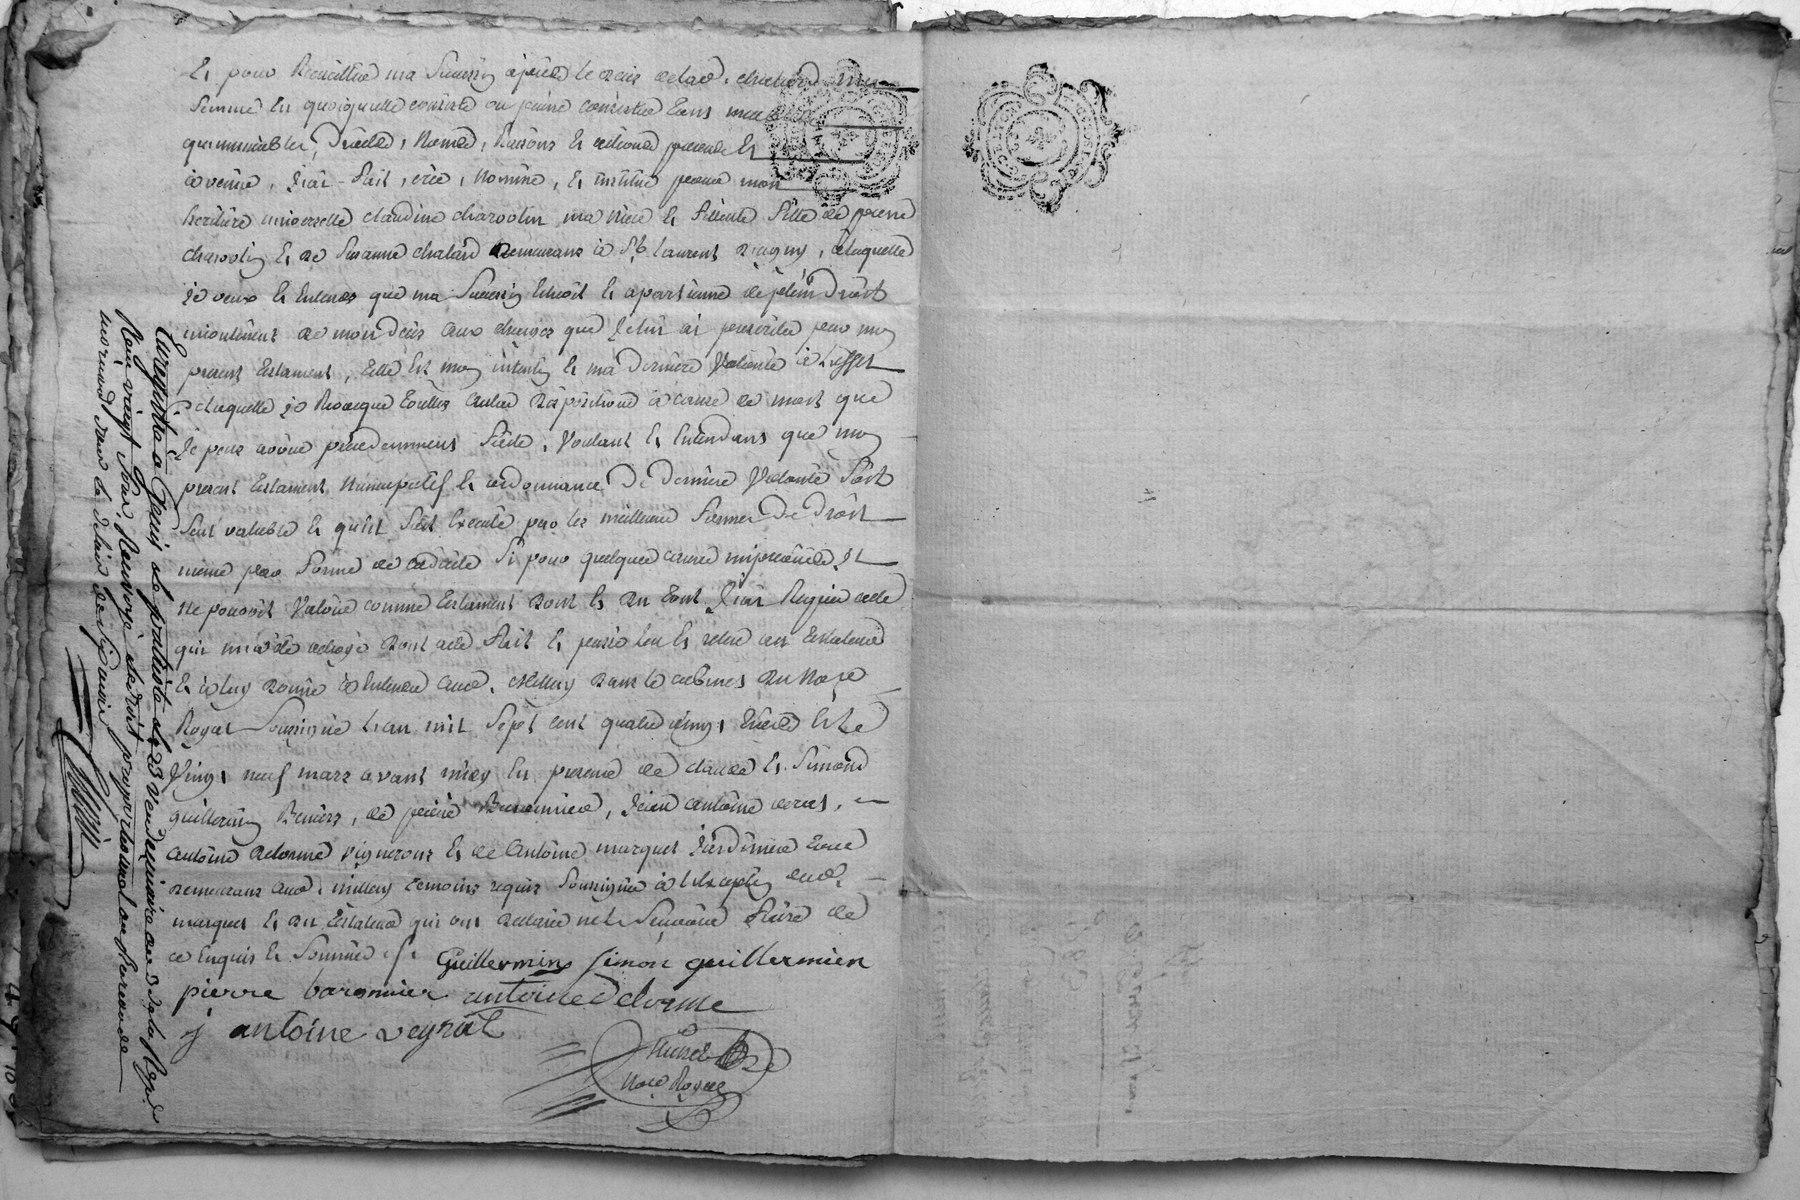 Et pour Recueillir ma Succession après le décès de lad. chatard ma
femme en quoiqu'elle consiste ou puisse consister Tans meubles
qu'immeubles, Droits, Noms, Raisons Et actions présens Et
à venir, J'ai fait, créé, Nommé, Et institué pour mon
heritière universelle claudine charvolin ma nièce Et filleule fille de pierre
charvolin Et de Suzanne chatard demeurans à St. Laurent d'agny, à laquelle
je veux Et Entends que ma Succession Echoit Et apartienne de plein Droit
incontinent de mon décès aux charges que j'ai prescrites par mon
présent Testament, Telle Est mon intention Et ma dernière Volonté à L'effet
de laquelle je Révoque Toutes autres dispositions à cause de mort que
Je peux avoir précédemment faite, Voulant Et Entendant que mon
présent Testament Nuncupatif Et ordonnance De dernière Volonté Soit
Seul valable Et qu'il Soit Executé par les meilleures formes De Droit
même par forme de codicile Si pour quelques causes imprévües il
Ne pouvoit Valoir comme Testament dont Et du tout J'ai Requis acte
qui m'a été octroyé dont acte fait Et passé leu Et releu au Testateur
Et à luy donné à Entendre aud. Millery dans le cabinet du No.re
Royal Soussigné L'an mil Sept cent quatre vingt treize Et le
Vingt neuf mars avant midy En présence de claude Et Simond
guillermin, de pierre Baronnier, Jean antoine veyrat,
antoine delorme vignerons Et de Antoine marquet Jardinier tous
demeurans aud. millery témoins requis Soussignés à l'Exception dud.
marquet Et du Testateur qui ont déclaré ne le Scavoir faire de
ce Enquis Et Sommés
Guillermin simon guillermien
pierre baronnier antoine Delorme
j antoine veyrat
No.re Royal
Enregistré à Genis le patriote le 23 Vendemiaire an 3 de la Rep.
Reçu vingt Sous, Renvoyé le droit proportionnel au Bureau de